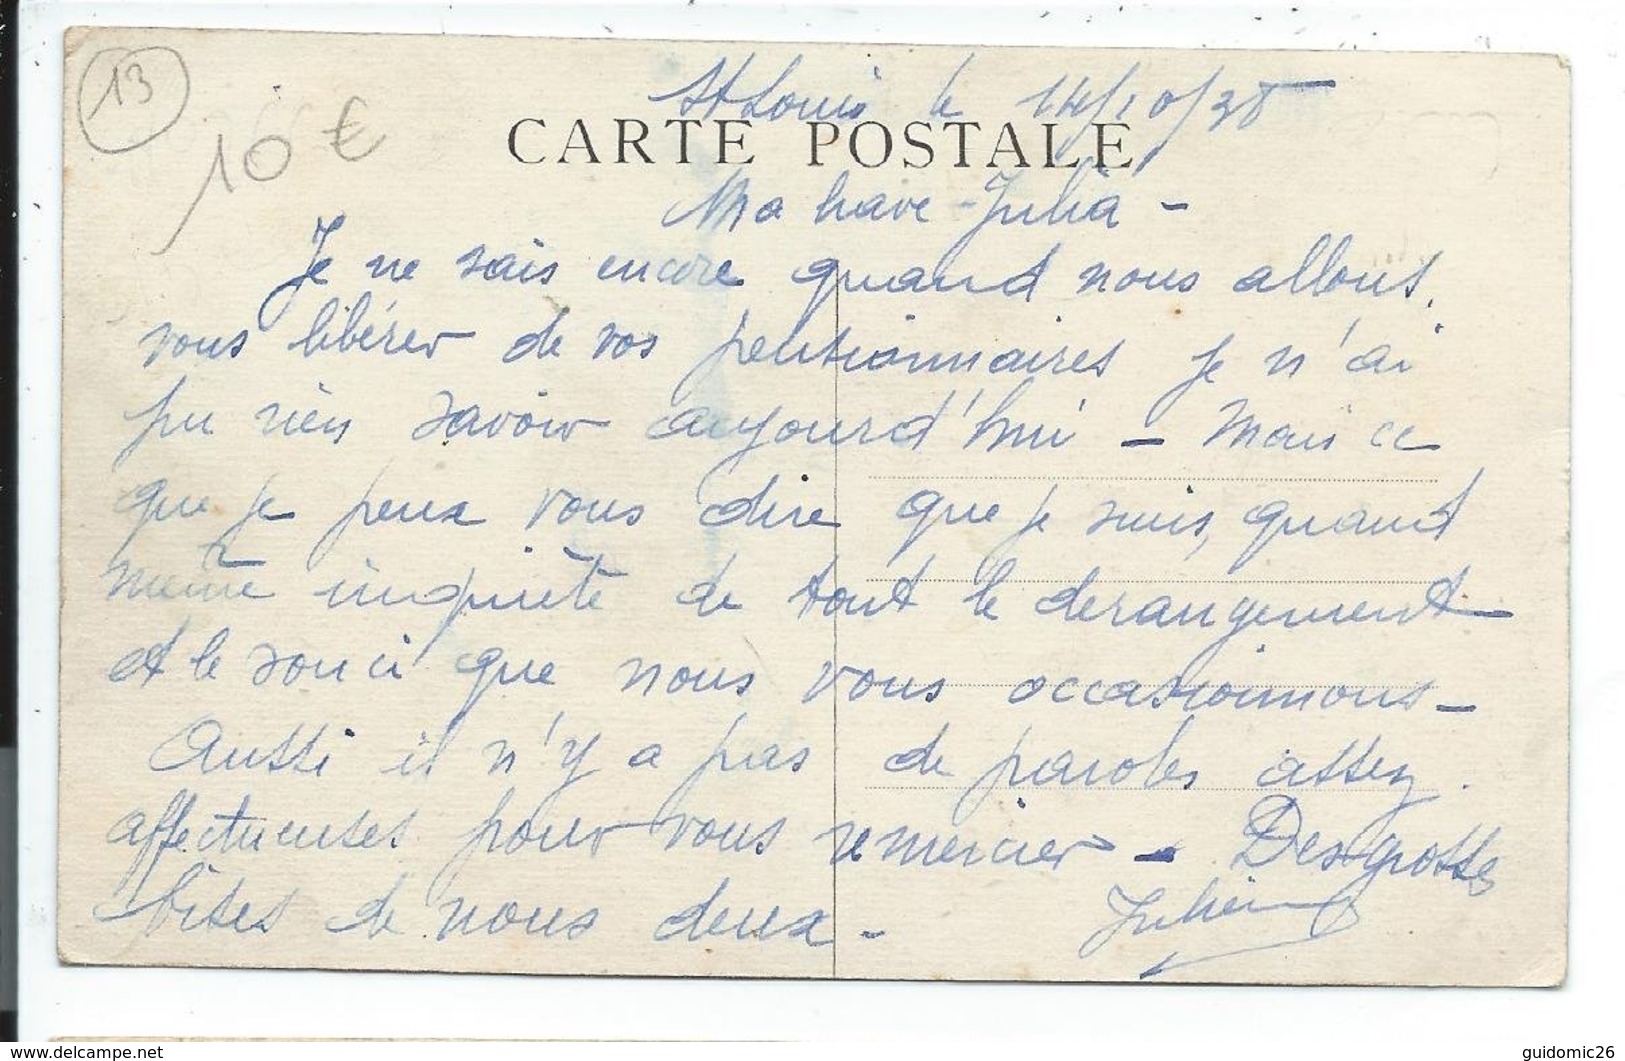 13
10 €
St Louis le 14/10/38
CARTE POSTALE
Ma brave Julia -
Je ne sais encore quand nous allons
vous libérer de vos pensionnaires je n'ai
pu rien savoir aujourd'hui - Mais ce
que je peux vous dire que je suis, quand
même inquiète de tout le derangement
et le souci que nous vous occasionnons -
Aussi il n'y a pas de paroles assez
affectueuses pour vous remercier - Des grosses
bises de nous deux -
delcampe.net
guidomic26